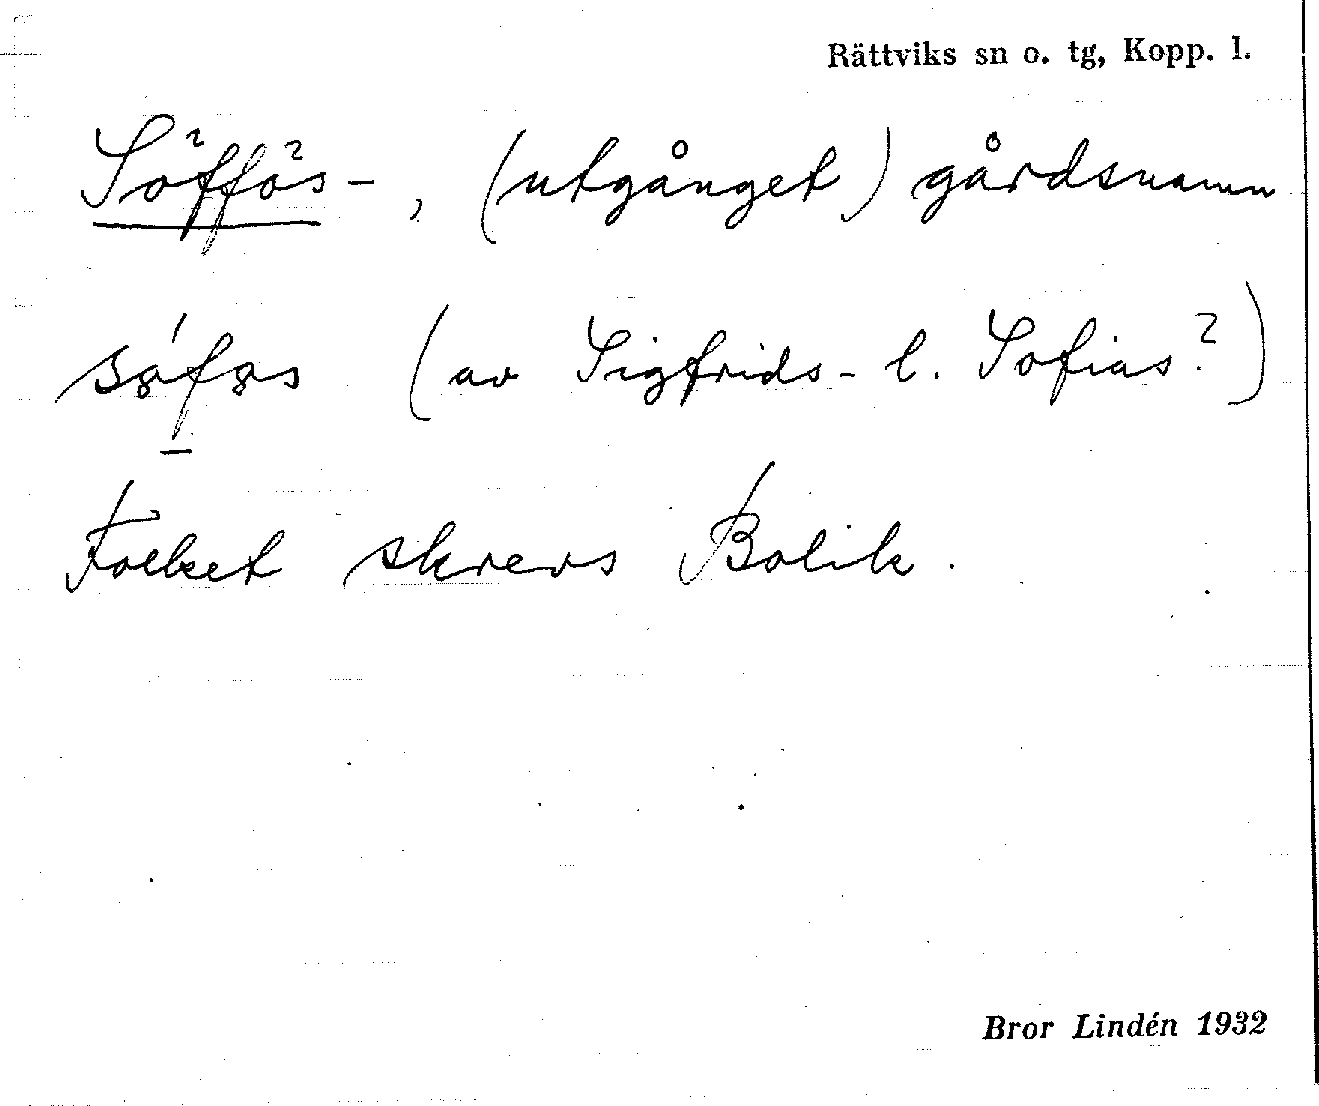 Rättviks sn o. tg, Kopp. l.
Söffös-, (utgånget) gårdsnamn
(av Sigfrids- l. Sofias?)
Folket skrevs Bolik.
Bror Lindén 1932